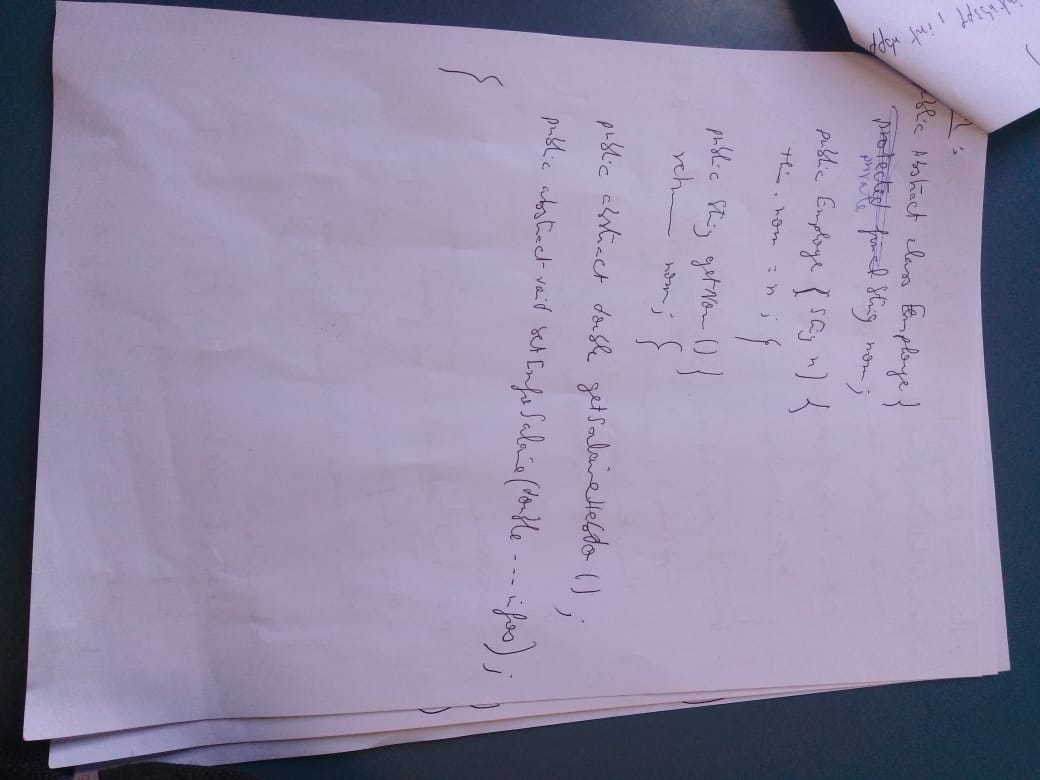 1 :
public Abstract class Employe {
protected final String nom ;
private
public Employe ( String n ) {
this . nom = n ; }
public String getNom () {
return nom ; }
public abstract double getSalaireHebdo () ;
public abstract void setInfoSalaire (double ... infos) ;
}